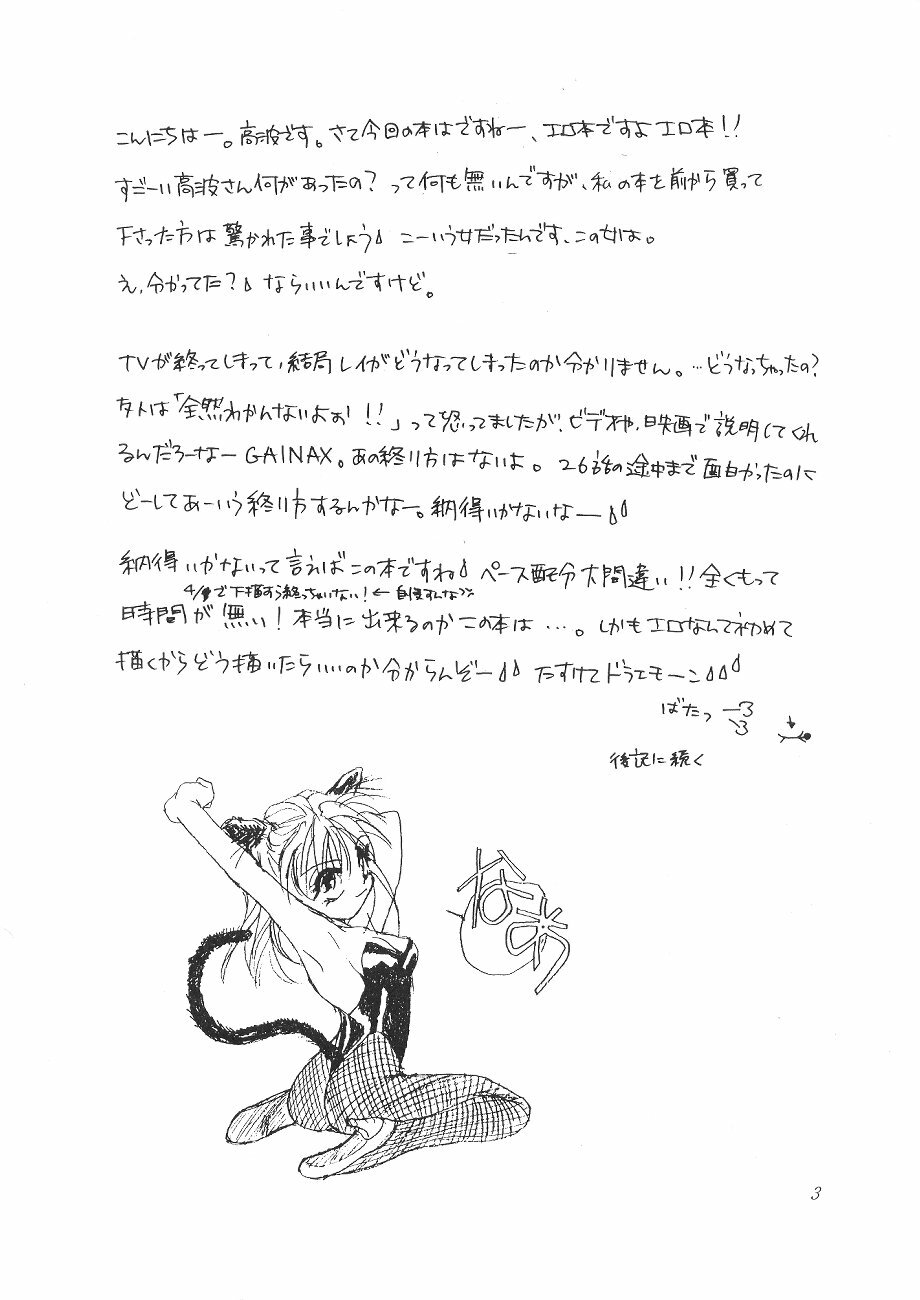 こんにちはー。高波です。さて今回の本はですねー、エロ本ですよエロ本!!
すごーい高波さん何があったの?って何も無いんですが、私の本を前から買って
下さった方は驚かれた事でしょう こーいう女だったんです、この女は。
え、分かってた? ならいいんですけど。
TVが終ってしまって、結局レイがどうなってしまったのか分かりません。…どうなっちゃったの?
友人は「全然わかんないよぉ!!」って怒ってましたが、ビデオや、映画で説明してくれ
るんだろーなーGAINAX。あの終り方はないよ。26話の途中まで面白かったのに
どーしてあーいう終り方するんかなー。納得いかないなー
納得いかないって言えばこの本ですね ペース配分大間違い!!全くもって
で下描すら終っちゃいない!←自慢すんなよ
時間が無い!本当に出来るのかこの本は…。しかもエロなんて初めて
描くからどう描いたらいいのか分からんぞー たすけてドラエモーン
ばたっ
後記に続く
なあ
3